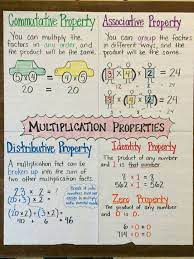 Commutative Property
You can multiply the
factors in any order, and
the product will be the same.
20 = 20
Associative Property
You can group the factors
in different ways, and the
product will be the same.
= 24
= 24
MULTIPLICATION PROPERTIES
Distributive Property
A multiplication fact can be
broken up into the sum of
two other multiplication facts.
23 x 2 =
(20 x 2) + (3 x 2)
Identity Property
The product of any number
and 1 is that number.
8 x 1 = 8
562 x 1 = 562
Zero Property
The product of any number
and 0 is 0.
6 x 0 = 0